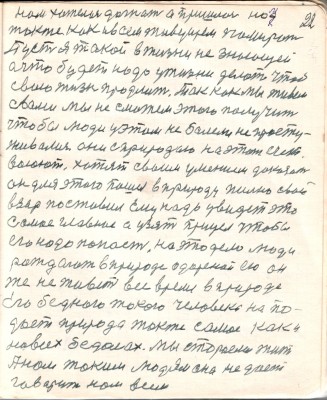 22
нам хотелся дожат а пришлос на
тоже как и всем живущем э помират
Пуст я такой в жизни не знающей
а что будет надо у жизни делат чтоб
свою жизн продлит. Так как мы живем
с вами мы не сможем этого получит
чтобы люди у этом не болели не просту-
живалис они с природою на этом
воюют. хотят своим умением доказат
он для этого пошел в природу
взяр поставил Ему надо увидет это
самое главное а узят прицел чтобы
его надо попаст. на это дело люди
рождают в природе одарёной ею он
же не живет все время в природе
Его бедного такого человека на по-
дает природа тоже самое как и
на всех бедолах. мы стораемся жит
А нам таким людям она не дает
говорит нам всем